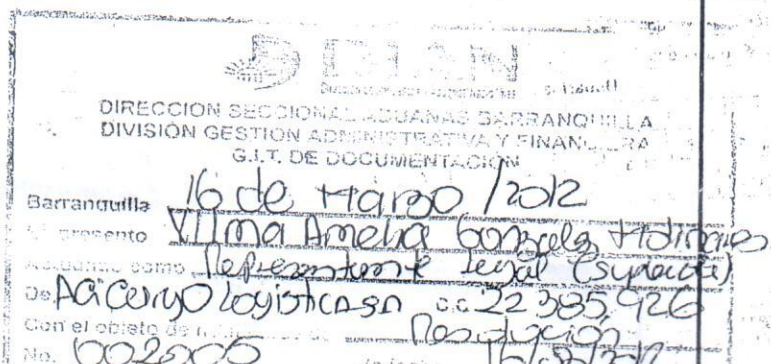 DIAN
DIRECCION SECCIONAL ADUANAS BARRANQUILLA
DIVISIÓN GESTION ADMINISTRATIVA Y FINANCIERA
G.I.T. DE DOCUMENTACIÓN
Barranquilla 16 de Marzo / 2012
presento Vilma Amelia Gonzalez
como Representante legal (suplente)
De Aci Cargo Logistica SA C.C. 22 385,926
Con el objeto de Resolución
No. 002005